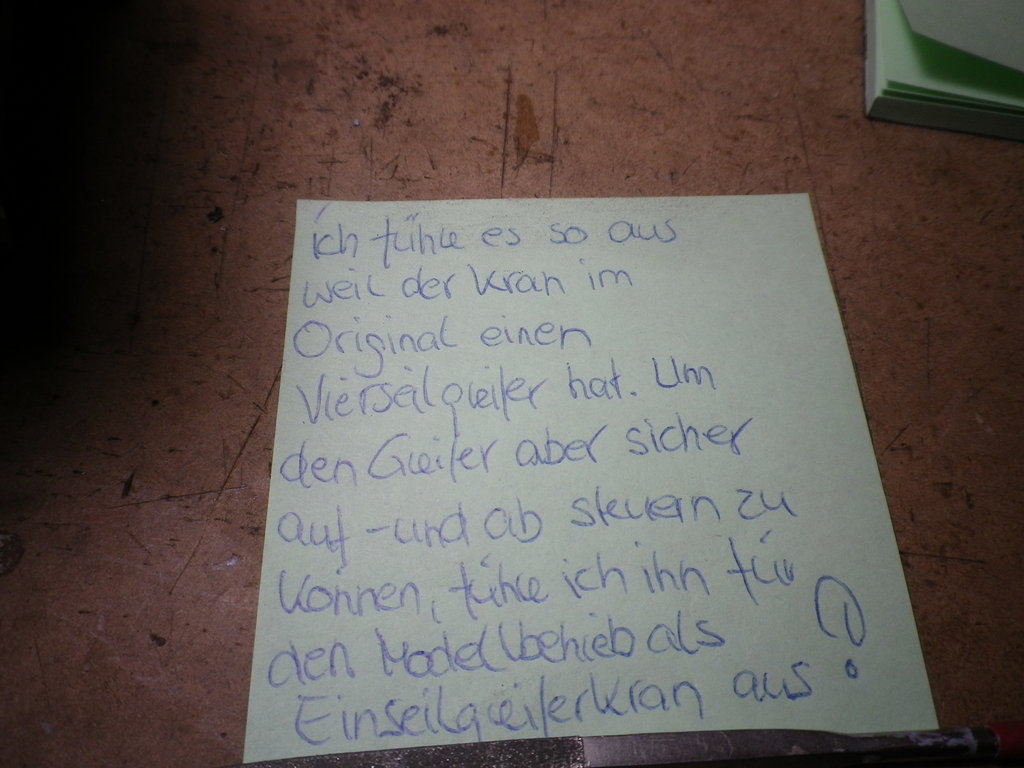 ich führe es so aus
weil der Kran im
Original einen
Vierseilgreifer hat. Um
den Greifer aber sicher
auf - und ab steuern zu
können, führe ich ihn für
den Modellbetrieb als
Einseilgreiferkran aus!